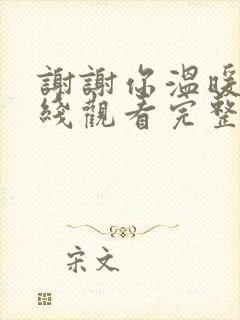 謝謝你溫暖
綫觀看完整
宋文